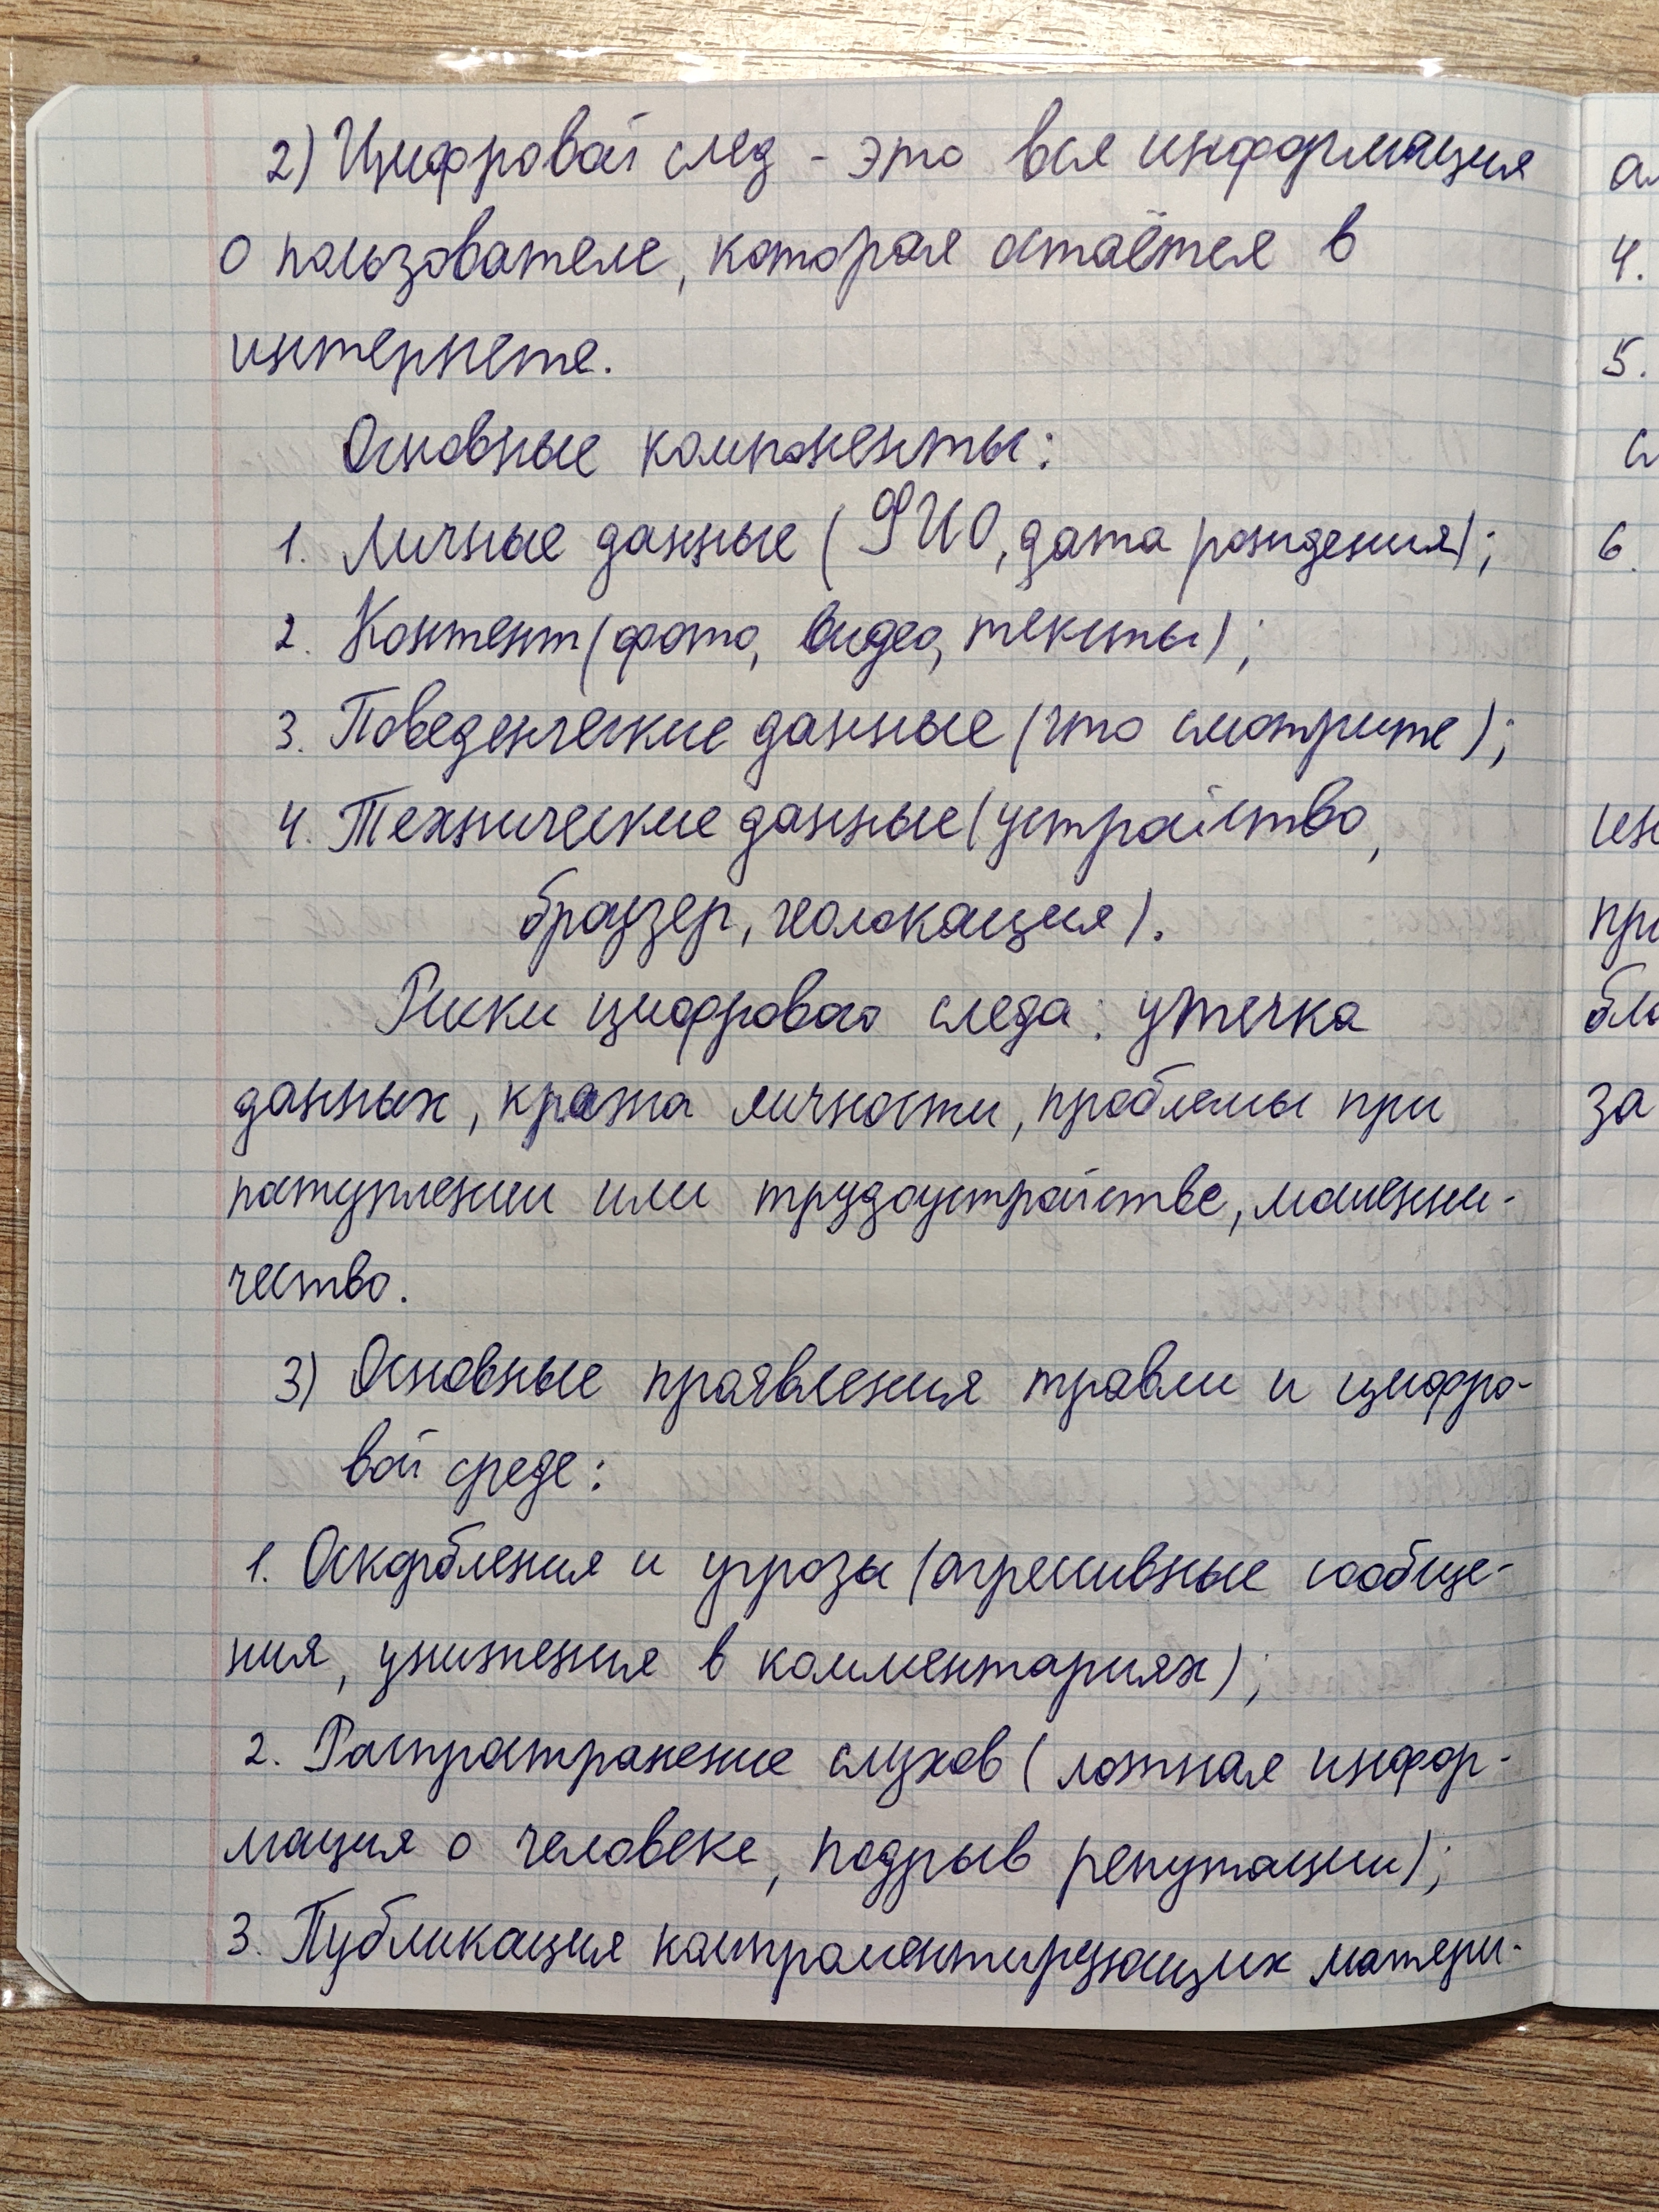 2) Цифровой след - это вся информация
о пользователе, которая остаётся в
интернете.
Основные компоненты:
1. Личные данные (ФИО, дата рождения);
2. Контент (фото, видео, тексты);
3. Поведенческие данные (что смотрите);
4. Технические данные (устройство,
браузер, геолокация).
Риски цифрового следа: утечка
данных, кража личности, проблемы при
поступлении или трудоустройстве, мошенни-
чество.
3) Основные проявления травли и цифро-
вой среде:
1. Оскорбления и угрозы (агрессивные сообще-
ния, унижения в комментариях);
2. Распространение слухов (ложная инфор-
мация о человеке, подрыв репутации);
3. Публикация компроментирующих матери-
4.
5.
6.
за